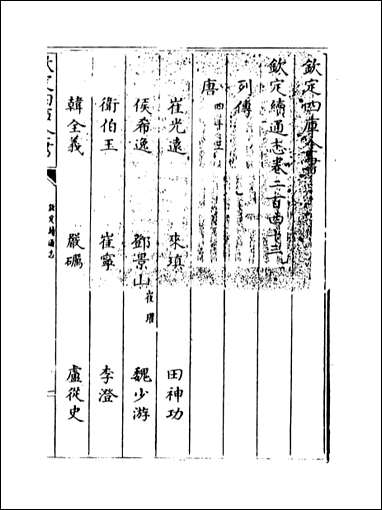 欽定四庫全書
欽定續通志卷二百四十三
列傳
唐四十三
崔光遠 來瑱 田神功
侯希逸 鄧景山崔瓘 魏少游
衛伯玉 崔寧 李澄
韓全義 嚴礪 盧從史
欽定四庫全書 欽定續通志